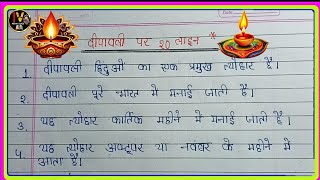 दीपावली पर २० लाइन
1. दीपावली हिंदुओं का एक प्रमुख त्योहार है।
२. दीपावली पूरे भारत में मनाई जाती है।
3. यह त्योहार कार्तिक महीने में मनाई जाती है।
4. यह त्योहार अक्टूबर या नवंबर के महीने में
आता है।